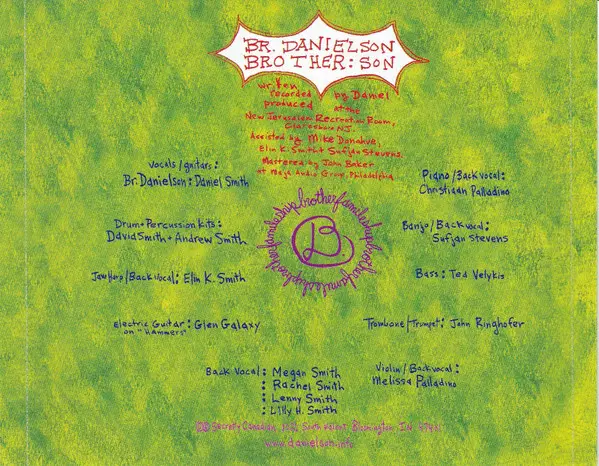 BR. DANIELSON
BROTHER: SON
written
recorded by Daniel
produced at the
New Jerusalem Recreation Room,
Clarksboro NJ.
Assisted by Mike Donahue,
Elin K. Smith + Sufjan Stevens.
Mastered by John Baker
at Maja Audio Group, Philadelphia
Vocals/guitars:
Br. Danielson: Daniel Smith
Piano/Back vocal:
Christiaan Palladino
Drum+Percussion Kits:
David Smith + Andrew Smith
Banjo/Back vocal:
Sufjan Stevens
B
brotherfamileship
Jaw Harp/Back vocal: Elin K. Smith
Bass: Ted Velykis
Electric Guitar: Glen Galaxy
on "HAMMERS"
Trombone/Trumpet: John Ringhofer
Back Vocal: Megan Smith
: Rachel Smith
: Lenny Smith
: Lilly H. Smith
Violin/Backvocal:
Melissa Palladino
Secretly Canadian, South Walnut Bloomington IN 47401
www.danielson.info